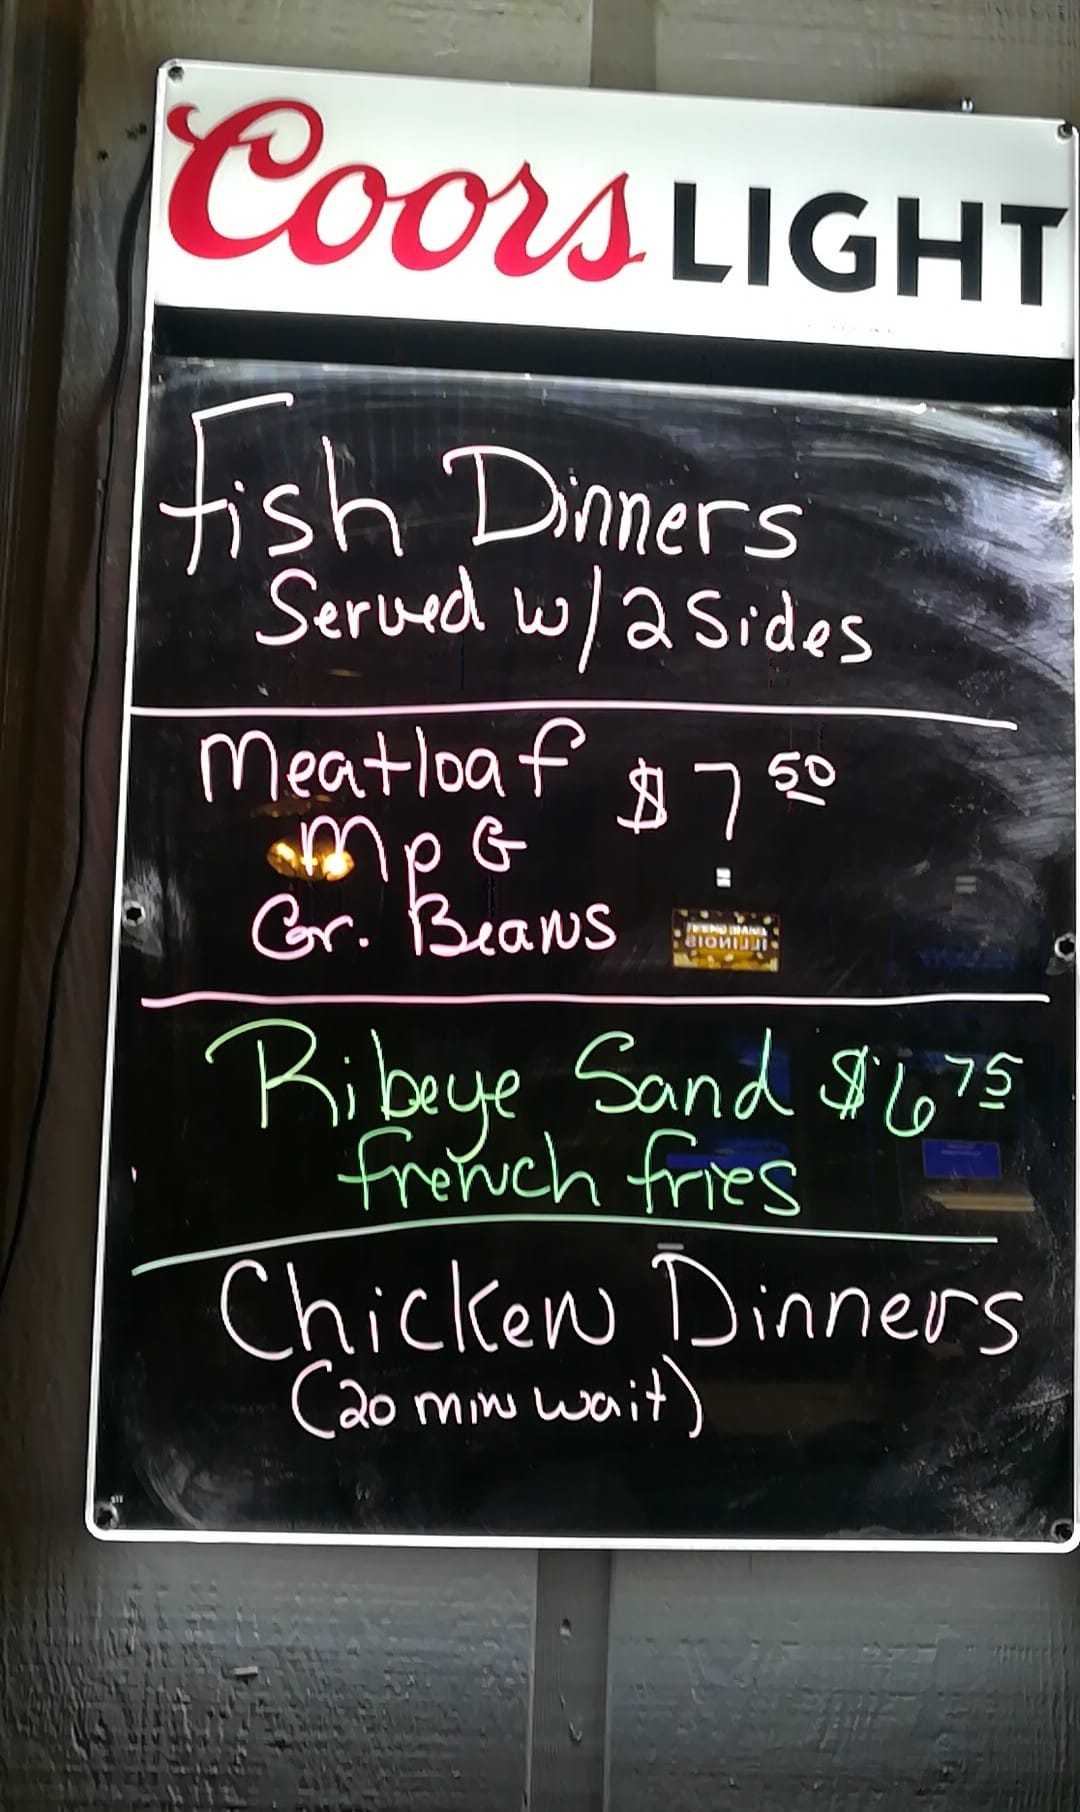 Coors LIGHT
Fish Dinners
Served w/ 2 Sides
Meatloaf $7 50
Mp G
Gr. Beans
Ribeye Sand $6 75
french fries
Chicken Dinners
(20 min wait)